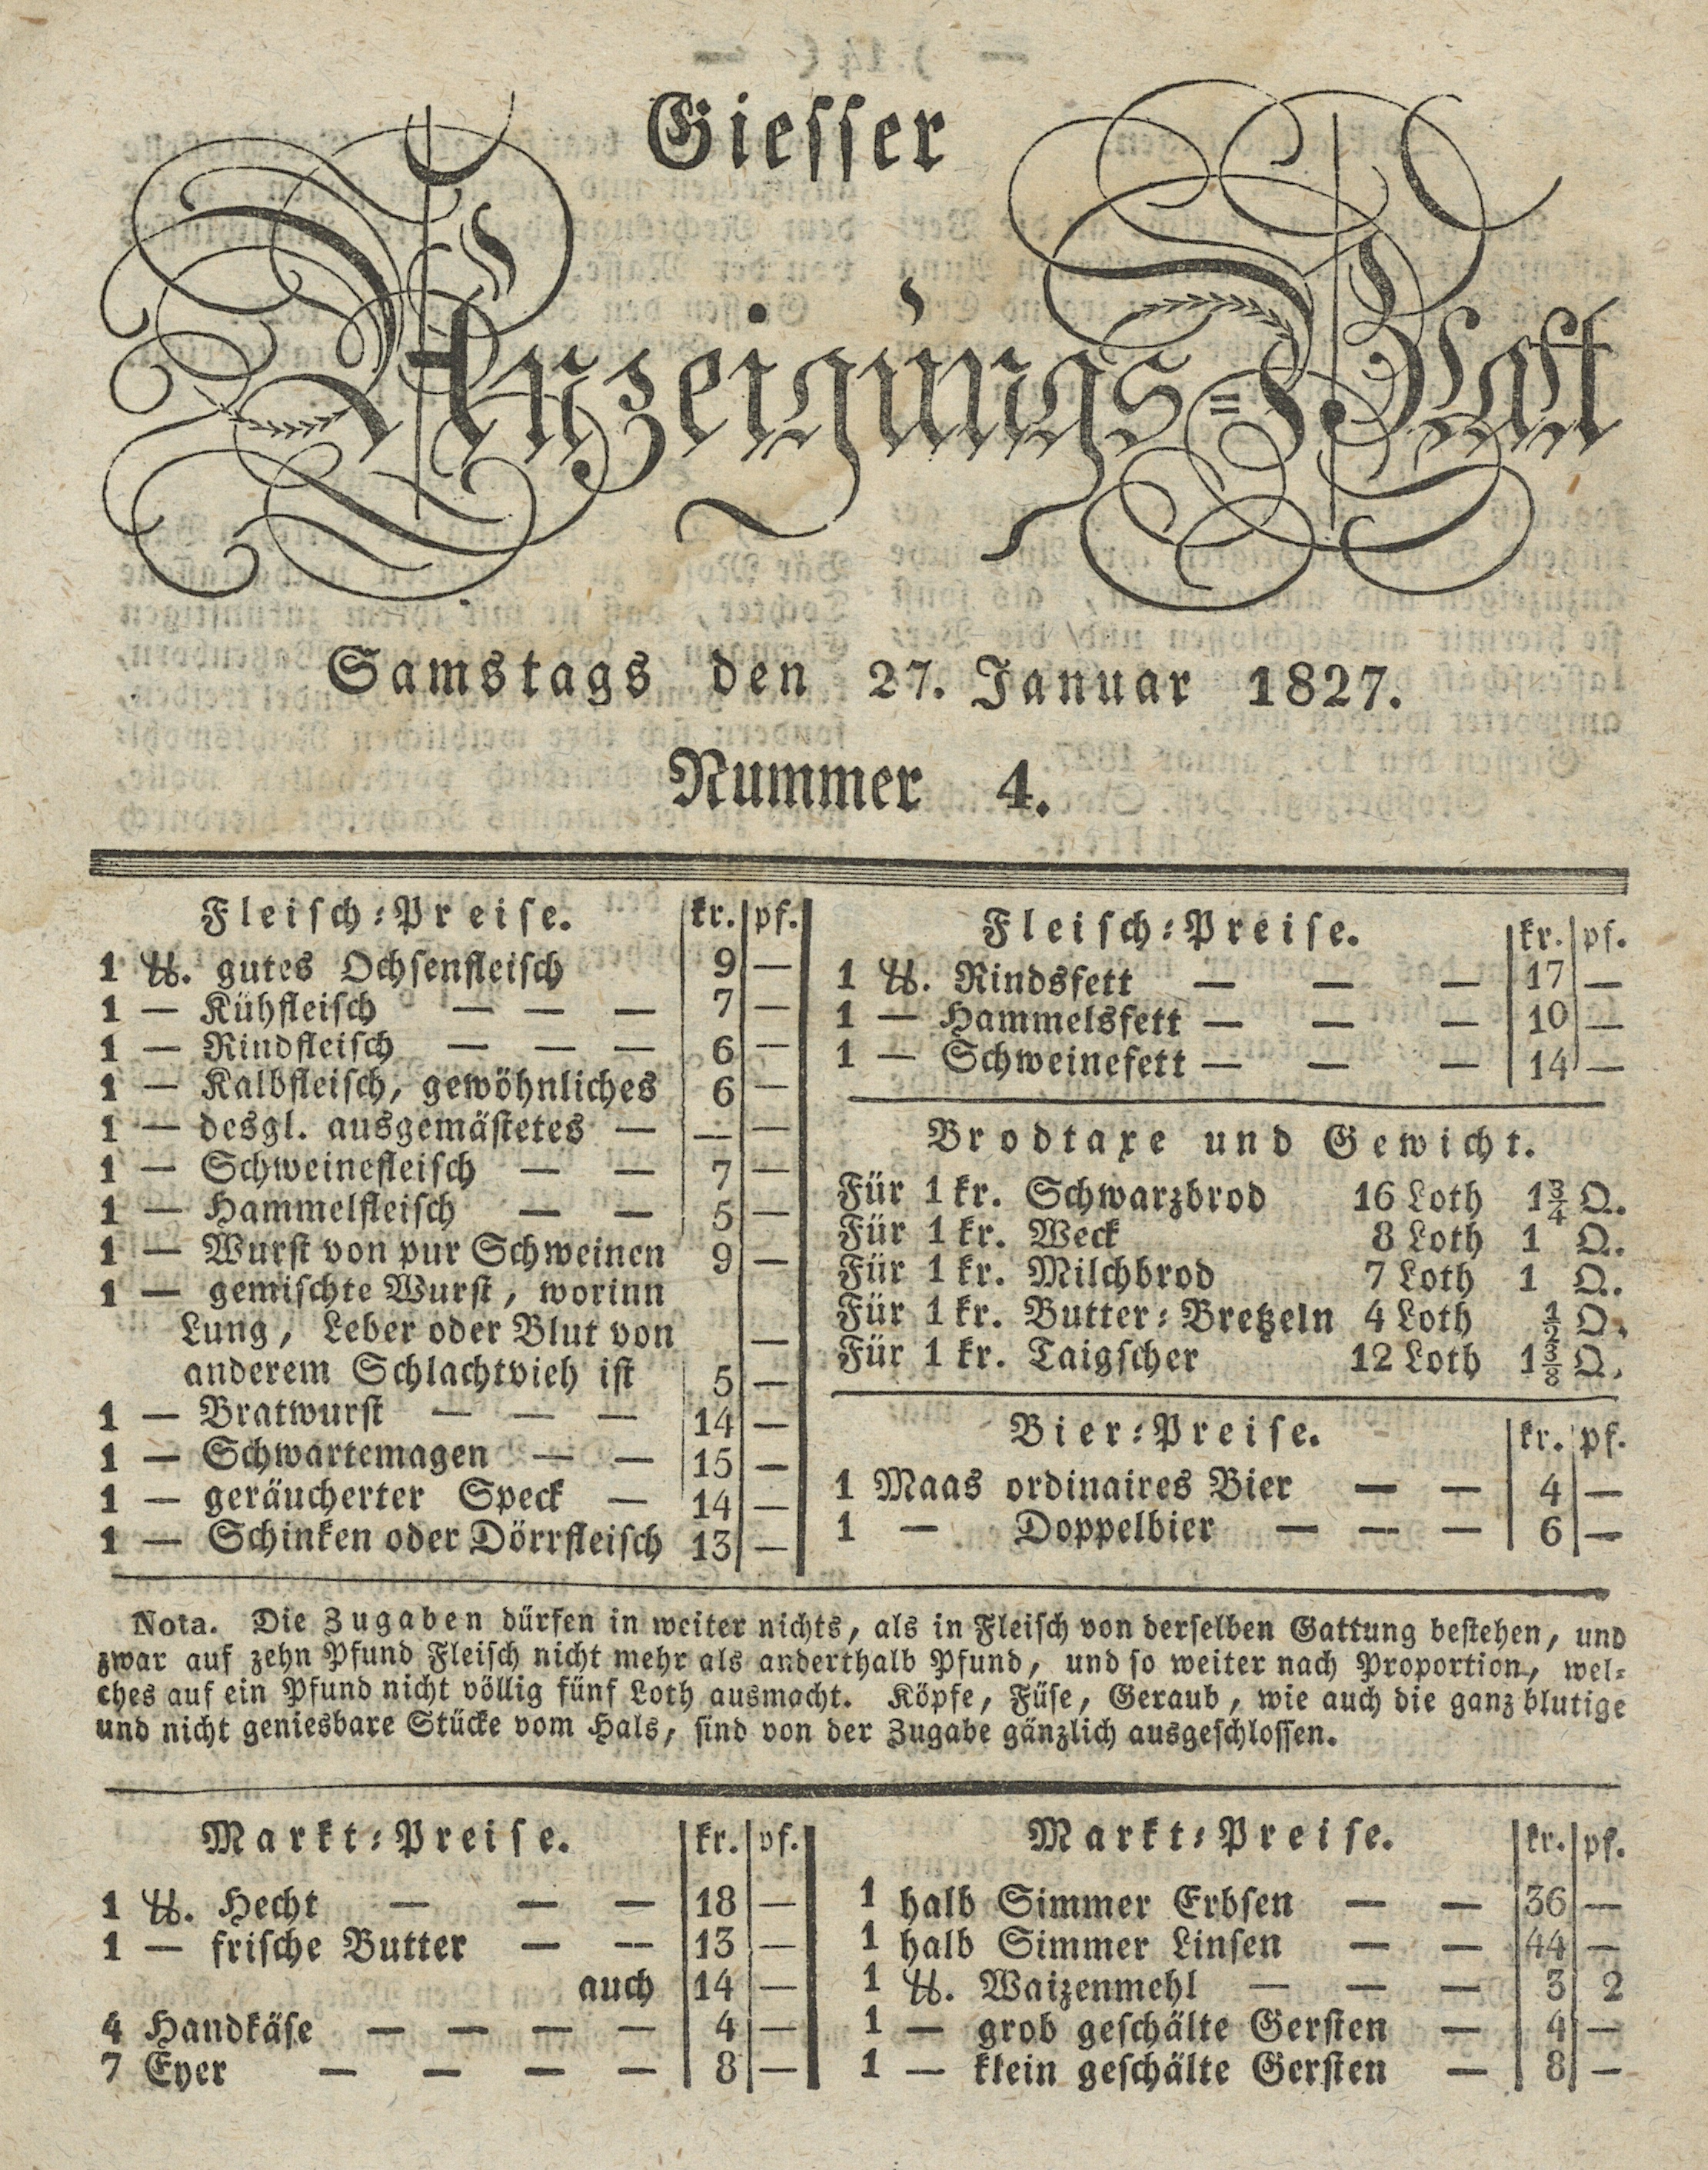 Giesser
Anzeigungs=Blatt
Samstags den 27. Januar 1827.
Nummer 4.
Fleisch=Preise. kr. pf.
1 ℔. gutes Ochsenfleisch 9 —
1 — Kühfleisch — — — 7 —
1 — Rindfleisch — — — 6 —
1 — Kalbfleisch, gewöhnliches 6 —
1 — desgl. ausgemästetes — — —
1 — Schweinefleisch — — 7 —
1 — Hammelfleisch — — 5 —
1 — Wurst von pur Schweinen 9 —
1 — gemischte Wurst, worinn
Lung, Leber oder Blut von —
anderem Schlachtvieh ist 5 —
1 — Bratwurst — — — 14 —
1 — Schwartemagen — — 15 —
1 — geräucherter Speck — 14 —
1 — Schinken oder Dörrfleisch 13 —
Fleisch=Preise. kr. pf.
1 ℔. Rindsfett — — — 17 —
1 — Hammelsfett — — — 10 —
1 — Schweinefett — — — 14 —
Brodtaxe und Gewicht.
Für 1 kr. Schwarzbrod 16 Loth 1¾ Q.
Für 1 kr. Weck 8 Loth 1 Q.
Für 1 kr. Milchbrod 7 Loth 1 Q.
Für 1 kr. Butter=Bretzeln 4 Loth ½ Q.
Für 1 kr. Taigscher 12 Loth 1⅜ Q.
Bier=Preise. kr. pf.
1 Maas ordinaires Bier — — 4 —
1 — Doppelbier — — — 6 —
Nota. Die Zugaben dürfen in weiter nichts, als in Fleisch von derselben Gattung bestehen, und
zwar auf zehn Pfund Fleisch nicht mehr als anderthalb Pfund, und so weiter nach Proportion, wel=
ches auf ein Pfund nicht völlig fünf Loth ausmacht. Köpfe, Füse, Geraub, wie auch die ganz blutige
und nicht geniesbare Stücke vom Hals, sind von der Zugabe gänzlich ausgeschlossen.
Markt=Preise. kr. pf.
1 ℔. Hecht — — — 18 —
1 — frische Butter — — 13 —
auch 14 —
4 Handkäse — — — — 4 —
7 Eyer — — — — 8 —
Markt=Preise. kr. pf.
1 halb Simmer Erbsen — — 36 —
1 halb Simmer Linsen — — 44 —
1 ℔. Waizenmehl — — — 3 2
1 — grob geschälte Gersten — 4 —
1 — klein geschälte Gersten — 8 —